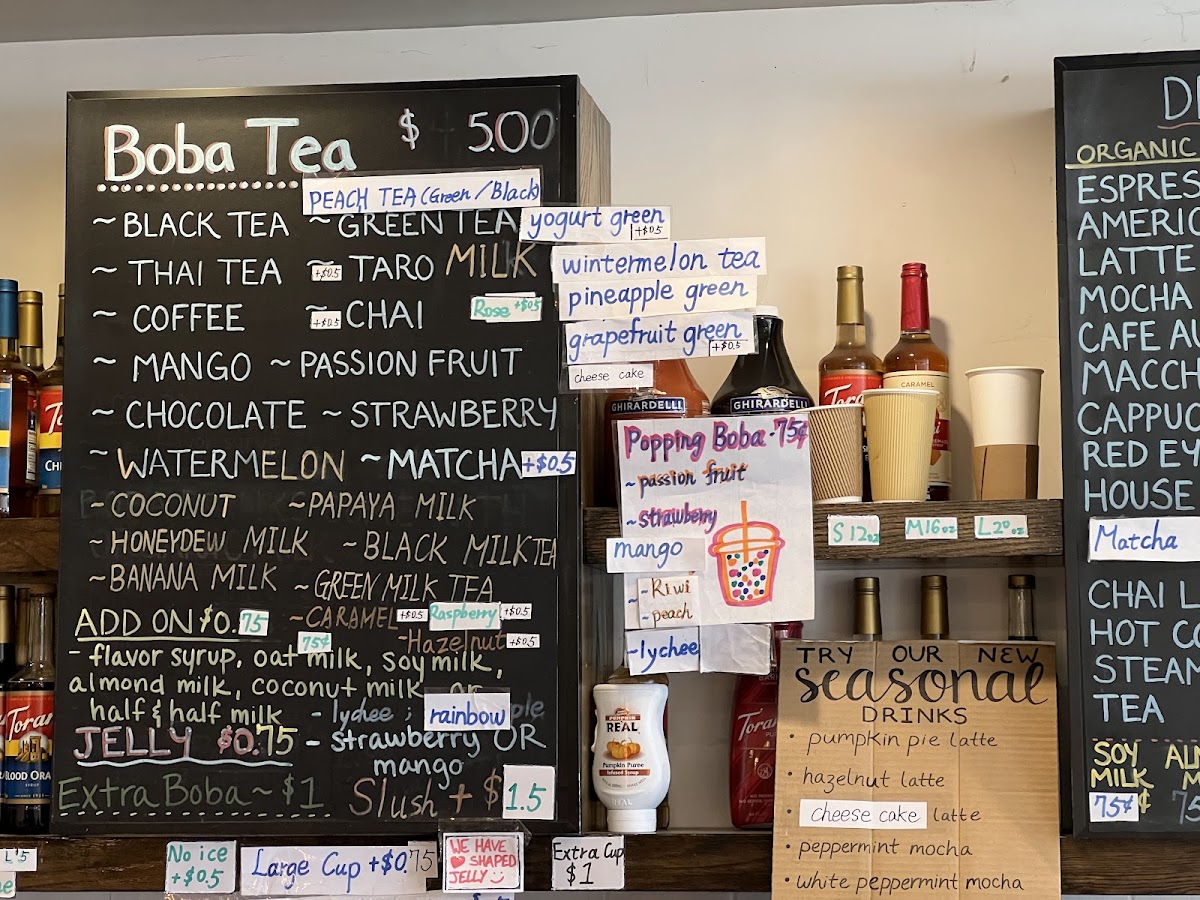 Boba Tea $ 5.00
PEACH TEA (Green / Black)
~ BLACK TEA ~ GREEN TEA
~ THAI TEA +$0.5 ~ TARO MILK
~ COFFEE +$0.5 ~ CHAI Rose +$0.5
~ MANGO ~ PASSION FRUIT
~ CHOCOLATE ~ STRAWBERRY
~ WATERMELON ~ MATCHA +$0.5
~ COCONUT ~ PAPAYA MILK
~ HONEYDEW MILK ~ BLACK MILK TEA
~ BANANA MILK ~ GREEN MILK TEA
ADD ON $0.75 ~ CARAMEL +$0.5 Raspberry +$0.5
75¢ - Hazelnut +$0.5
- flavor syrup, oat milk, soy milk,
almond milk, coconut milk, or
half & half milk - lychee ; rainbow
JELLY $0.75 - strawberry OR
mango
Extra Boba ~ $1 Slush + $1.5
yogurt green
+$0.5
wintermelon tea
pineapple green
grapefruit green
+$0.5
cheese cake
GHIRARDELLI
GHIRARDELLI
CARAMEL
Popping Boba - 75¢
~ passion fruit
~ strawberry
mango
- Kiwi
- peach
- lychee
S 12oz
M 16oz
L 20oz
PUMPKIN
REAL
Pumpkin Puree
Infused Syrup
TRY OUR NEW
seasonal
DRINKS
• pumpkin pie latte
• hazelnut latte
cheese cake latte
• peppermint mocha
• white peppermint mocha
No ice
+$0.5
Large Cup +$0.75
WE HAVE
SHAPED
JELLY
Extra Cup
$1
ORGANIC
ESPRES
AMERIC
LATTE
MOCHA
CAFE AU
MACCH
CAPPUC
RED EY
HOUSE
Matcha
CHAI L
HOT CO
STEAM
TEA
SOY
MILK
75¢
AL
M
Torani
BLOOD ORA